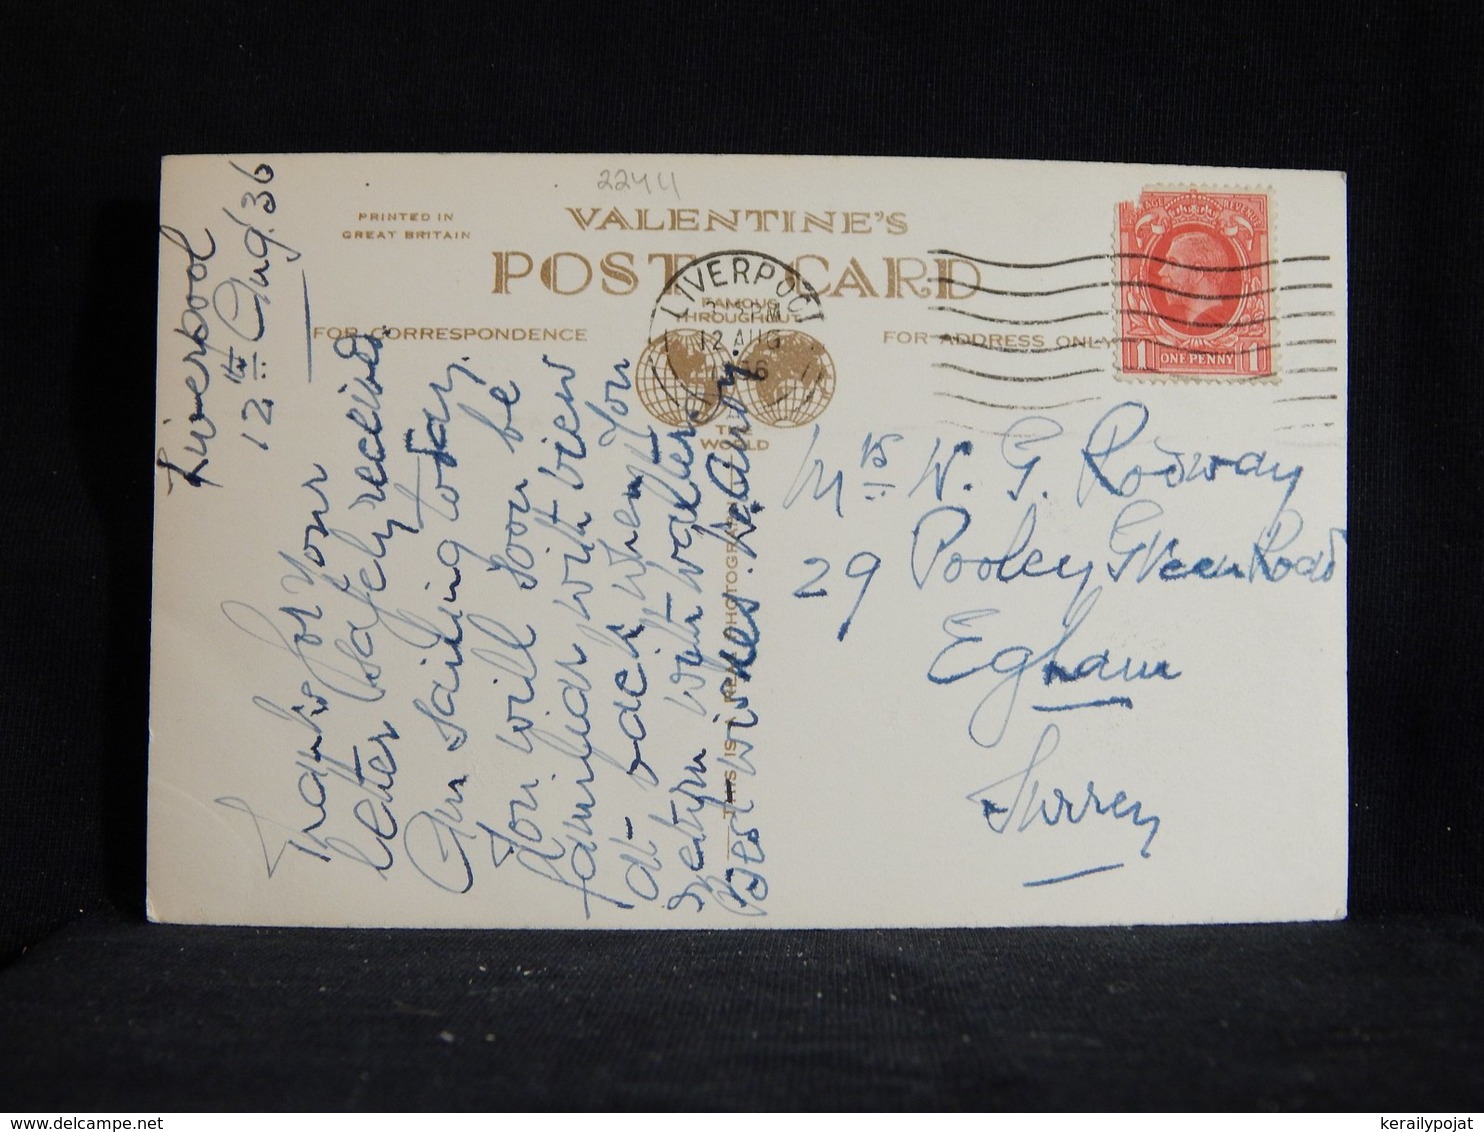 2244
PRINTED IN
GREAT BRITAIN
VALENTINE'S
POST CARD
FAMOUS
THROUGHOUT
THE
WORLD
FOR CORRESPONDENCE
FOR ADDRESS ONLY
LIVERPOOL
PM
12 AUG
REVENUE
1 ONE PENNY 1
Liverpool
12th Aug. '36
Thanks for your
letter safely received.
Am sailing to day.
You will soon be
familiar with view
at back when you
return
Best wishes.
THIS IS A REAL PHOTOGRAPH
Mrs W. G. Rodway
29 Pooley Green Road
Egham
Surrey
kerailypojat